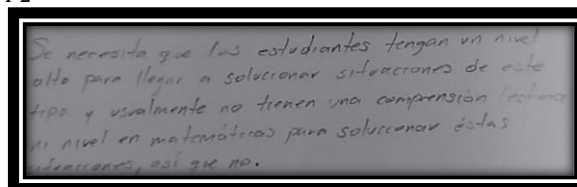 Se necesita que los estudiantes tengan un nivel
alto para llegar a solucionar situaciones de este
tipo y usualmente no tienen una comprensión lectora
ni nivel en matemáticas para solucionar éstas
situaciones, así que no.